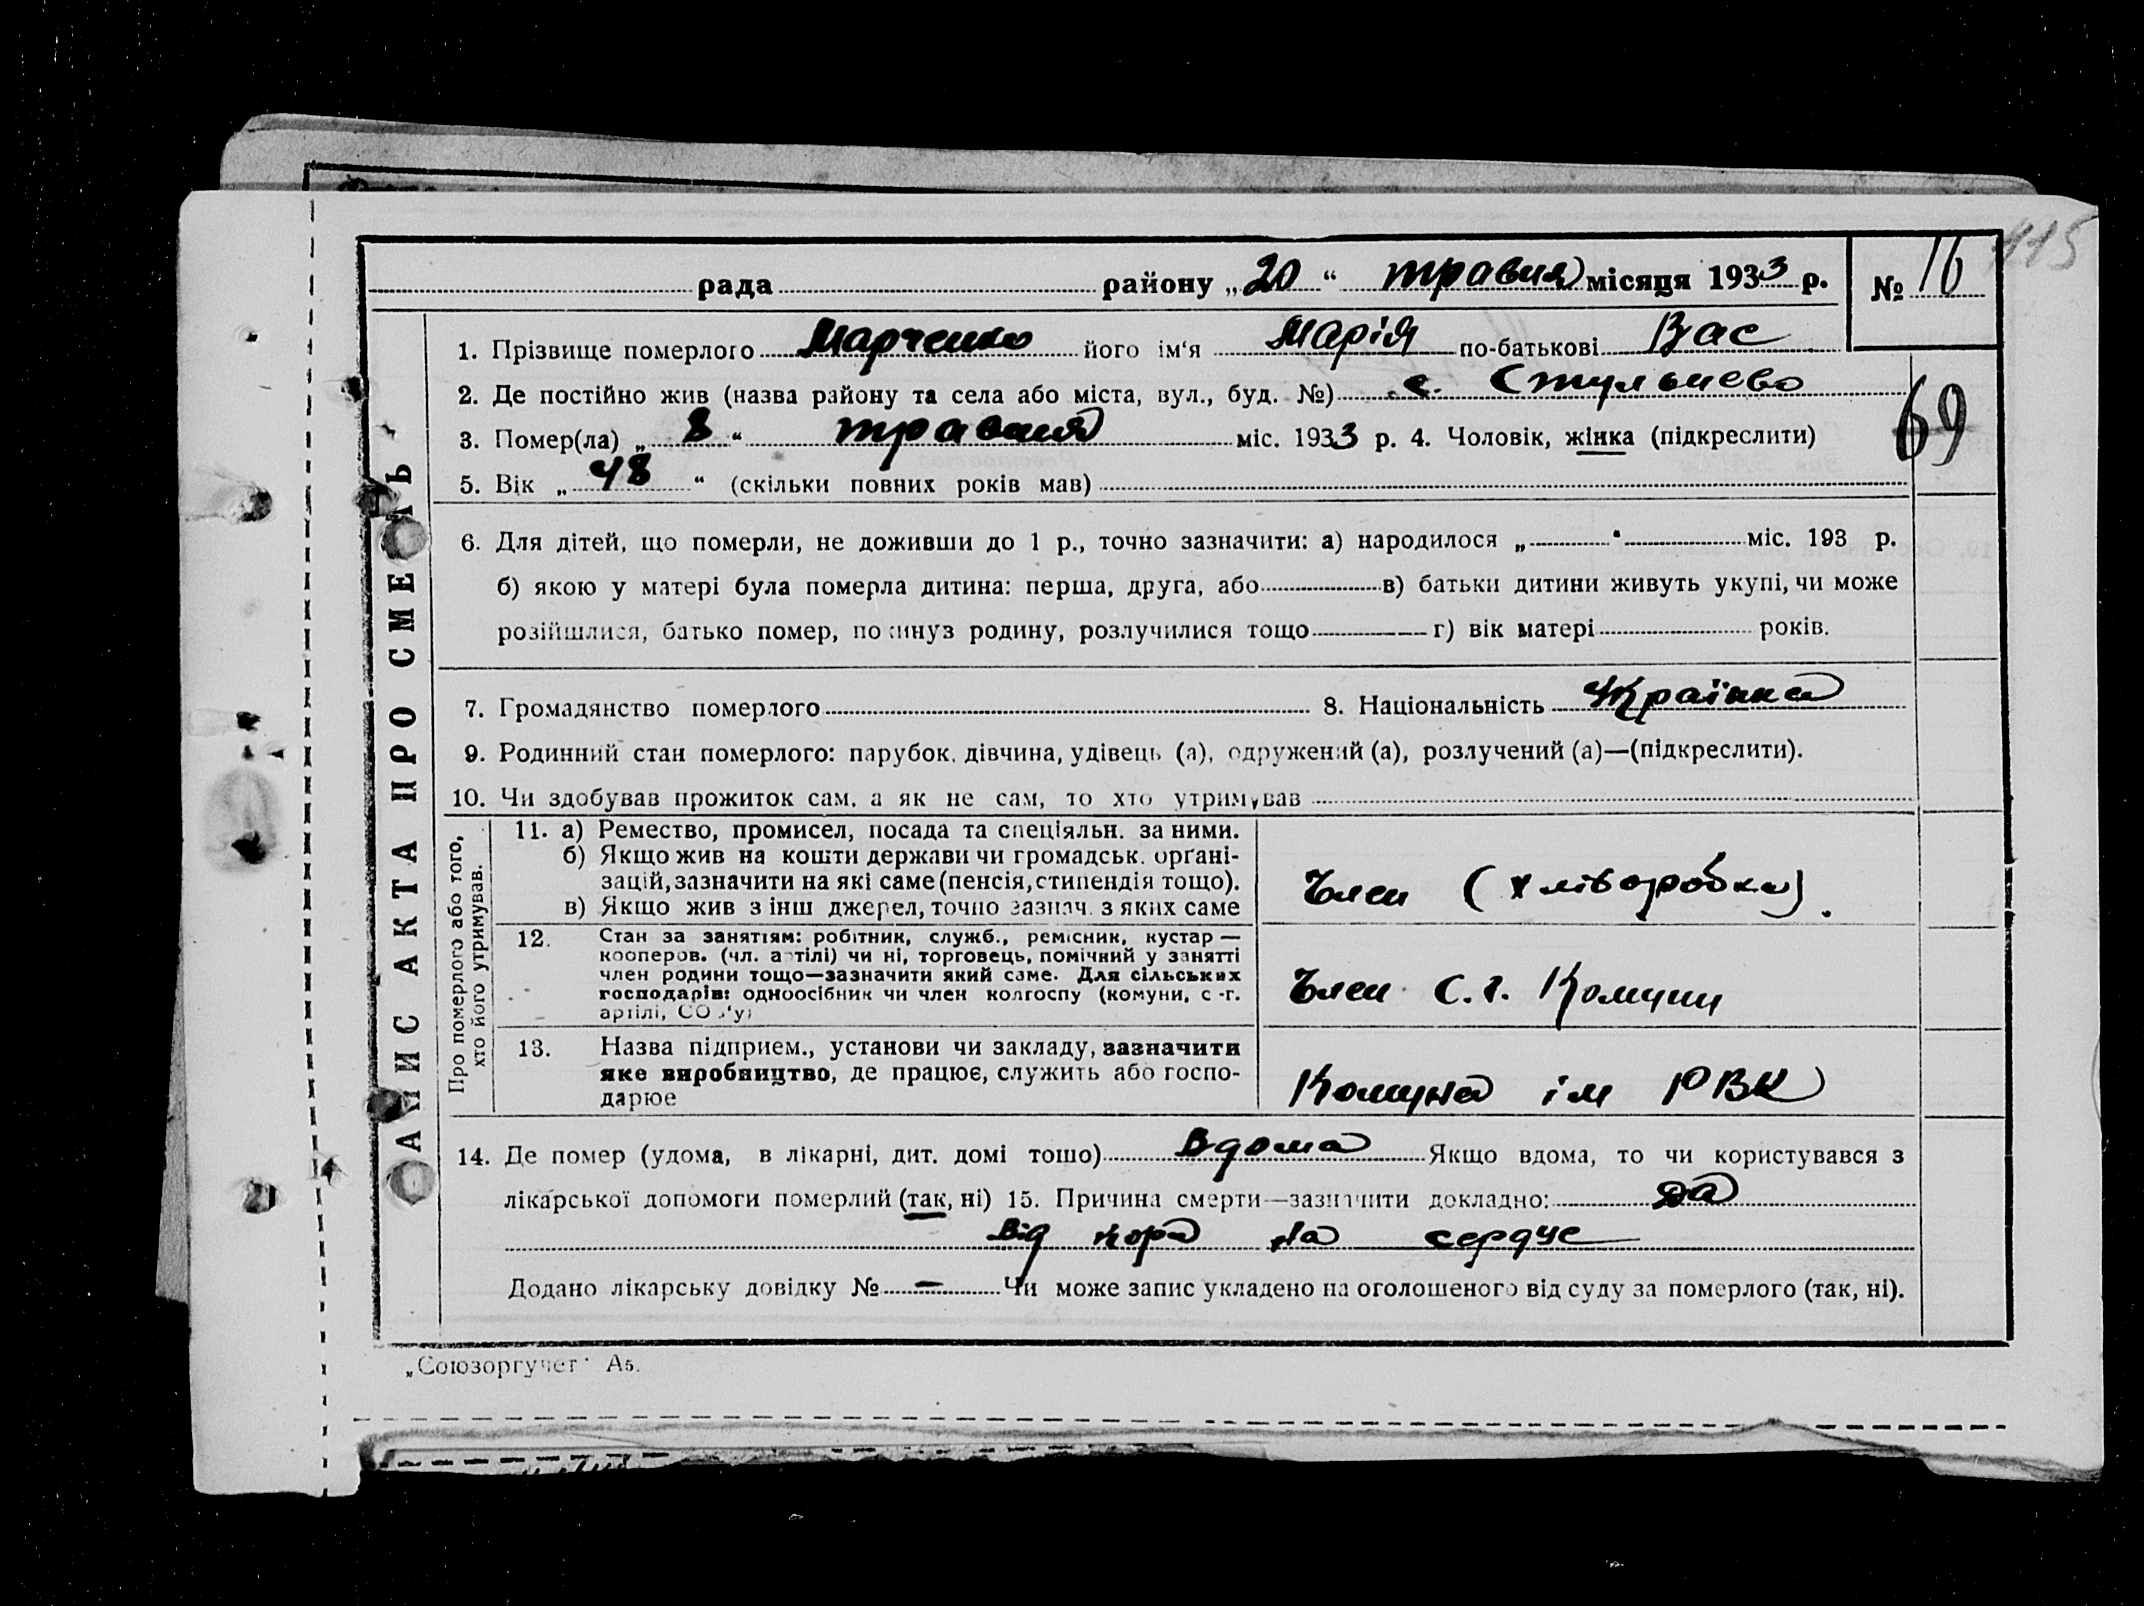 115
рада района „20“ травня місяця 1933 р. № 16
1. Прізвище померлого Марченко його ім'я Марія по-батькові Вас
2. Де постійно жив (назва району та села або міста, вул., буд. №) с. Стульнево
3. Помер(ла) „8“ травня міс. 1933 р. 4. Чоловік, жінка (підкреслити)
69
5. Вік „48“ (скільки повних років мав)
6. Для дітей, що померли, не доживши до 1 р., точно зазначити: а) народилося „ “ міс. 193 р.
б) якою у матері була померла дитина: перша, друга, або в) батьки дитини живуть укупі, чи може
розійшлися, батько помер, покинув родину, розлучилися тощо г) вік матері років.
7. Громадянство померлого 8. Національність Українка
9. Родинний стан померлого: парубок, дівчина, удівець (а), одружений (а), розлучений (а)—(підкреслити).
10. Чи здобував прожиток сам, а як не сам, то хто утримував
ЗАПИС АКТА ПРО СМЕРТЬ
Про померлого або того,
хто його утримував.
11. а) Ремество, промисел, посада та спеціяльн. за ними.
б) Якщо жив на кошти держави чи громадськ. орґані-
зацій, зазначити на які саме (пенсія, стипендія тощо).
в) Якщо жив з інш джерел, точно зазнач. з яких саме
Член (хліборобка).
12. Стан за заняттям: робітник, служб., ремісник, кустар —
кооперов. (чл. артілі) чи ні, торговець, помічний у занятті
член родини тощо—зазначити який саме. Для сільських
господарів: одноосібник чи член колгоспу (комуни, с.-г.
артілі, СОЗ'у)
Член С.г. Комуни
13. Назва підприєм., установи чи закладу, зазначити
яке виробництво, де працює, служить або госпо-
дарює
Комуна ім РВК
14. Де помер (удома, в лікарні, дит. домі тощо) Вдома Якщо вдома, то чи користувався з
лікарської допомоги померлий (так, ні) 15. Причина смерти—зазначити докладно: Да
Від пора на сердце
Додано лікарську довідку № — Чи може запис укладено на оголошеного від суду за померлого (так, ні).
„Союзоргучет“ А5.